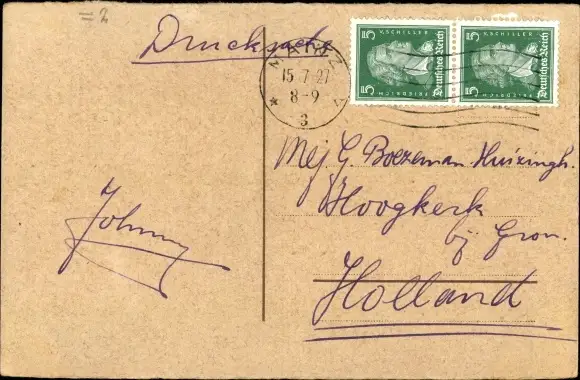 = 2
Drucksache
MAINZ
15.7.27
8-9
3
5 V. SCHILLER 5
Deutsches Reich
FRIEDRICH
5 V. SCHILLER 5
Deutsches Reich
FRIEDRICH
Mej G. Boezeman-Huizingh.
Hoogkerk
bij Gron.
Holland
Johnny